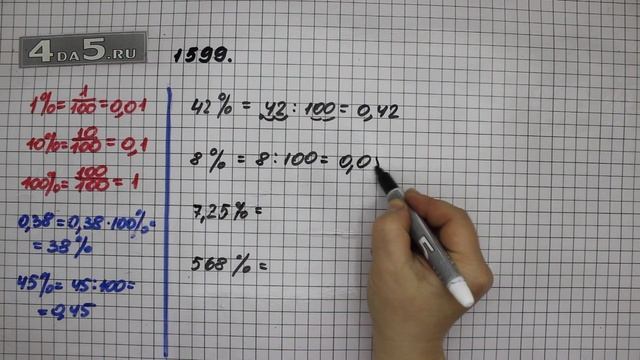 4DA5.RU
1599.
1% = 1/100 = 0,01
10% = 10/100 = 0,1
100% = 100/100 = 1
0,38 = 0,38 · 100% =
= 38%
45% = 45 : 100 =
= 0,45
42% = 42 : 100 = 0,42
8% = 8 : 100 = 0,0
7,25% =
568% =